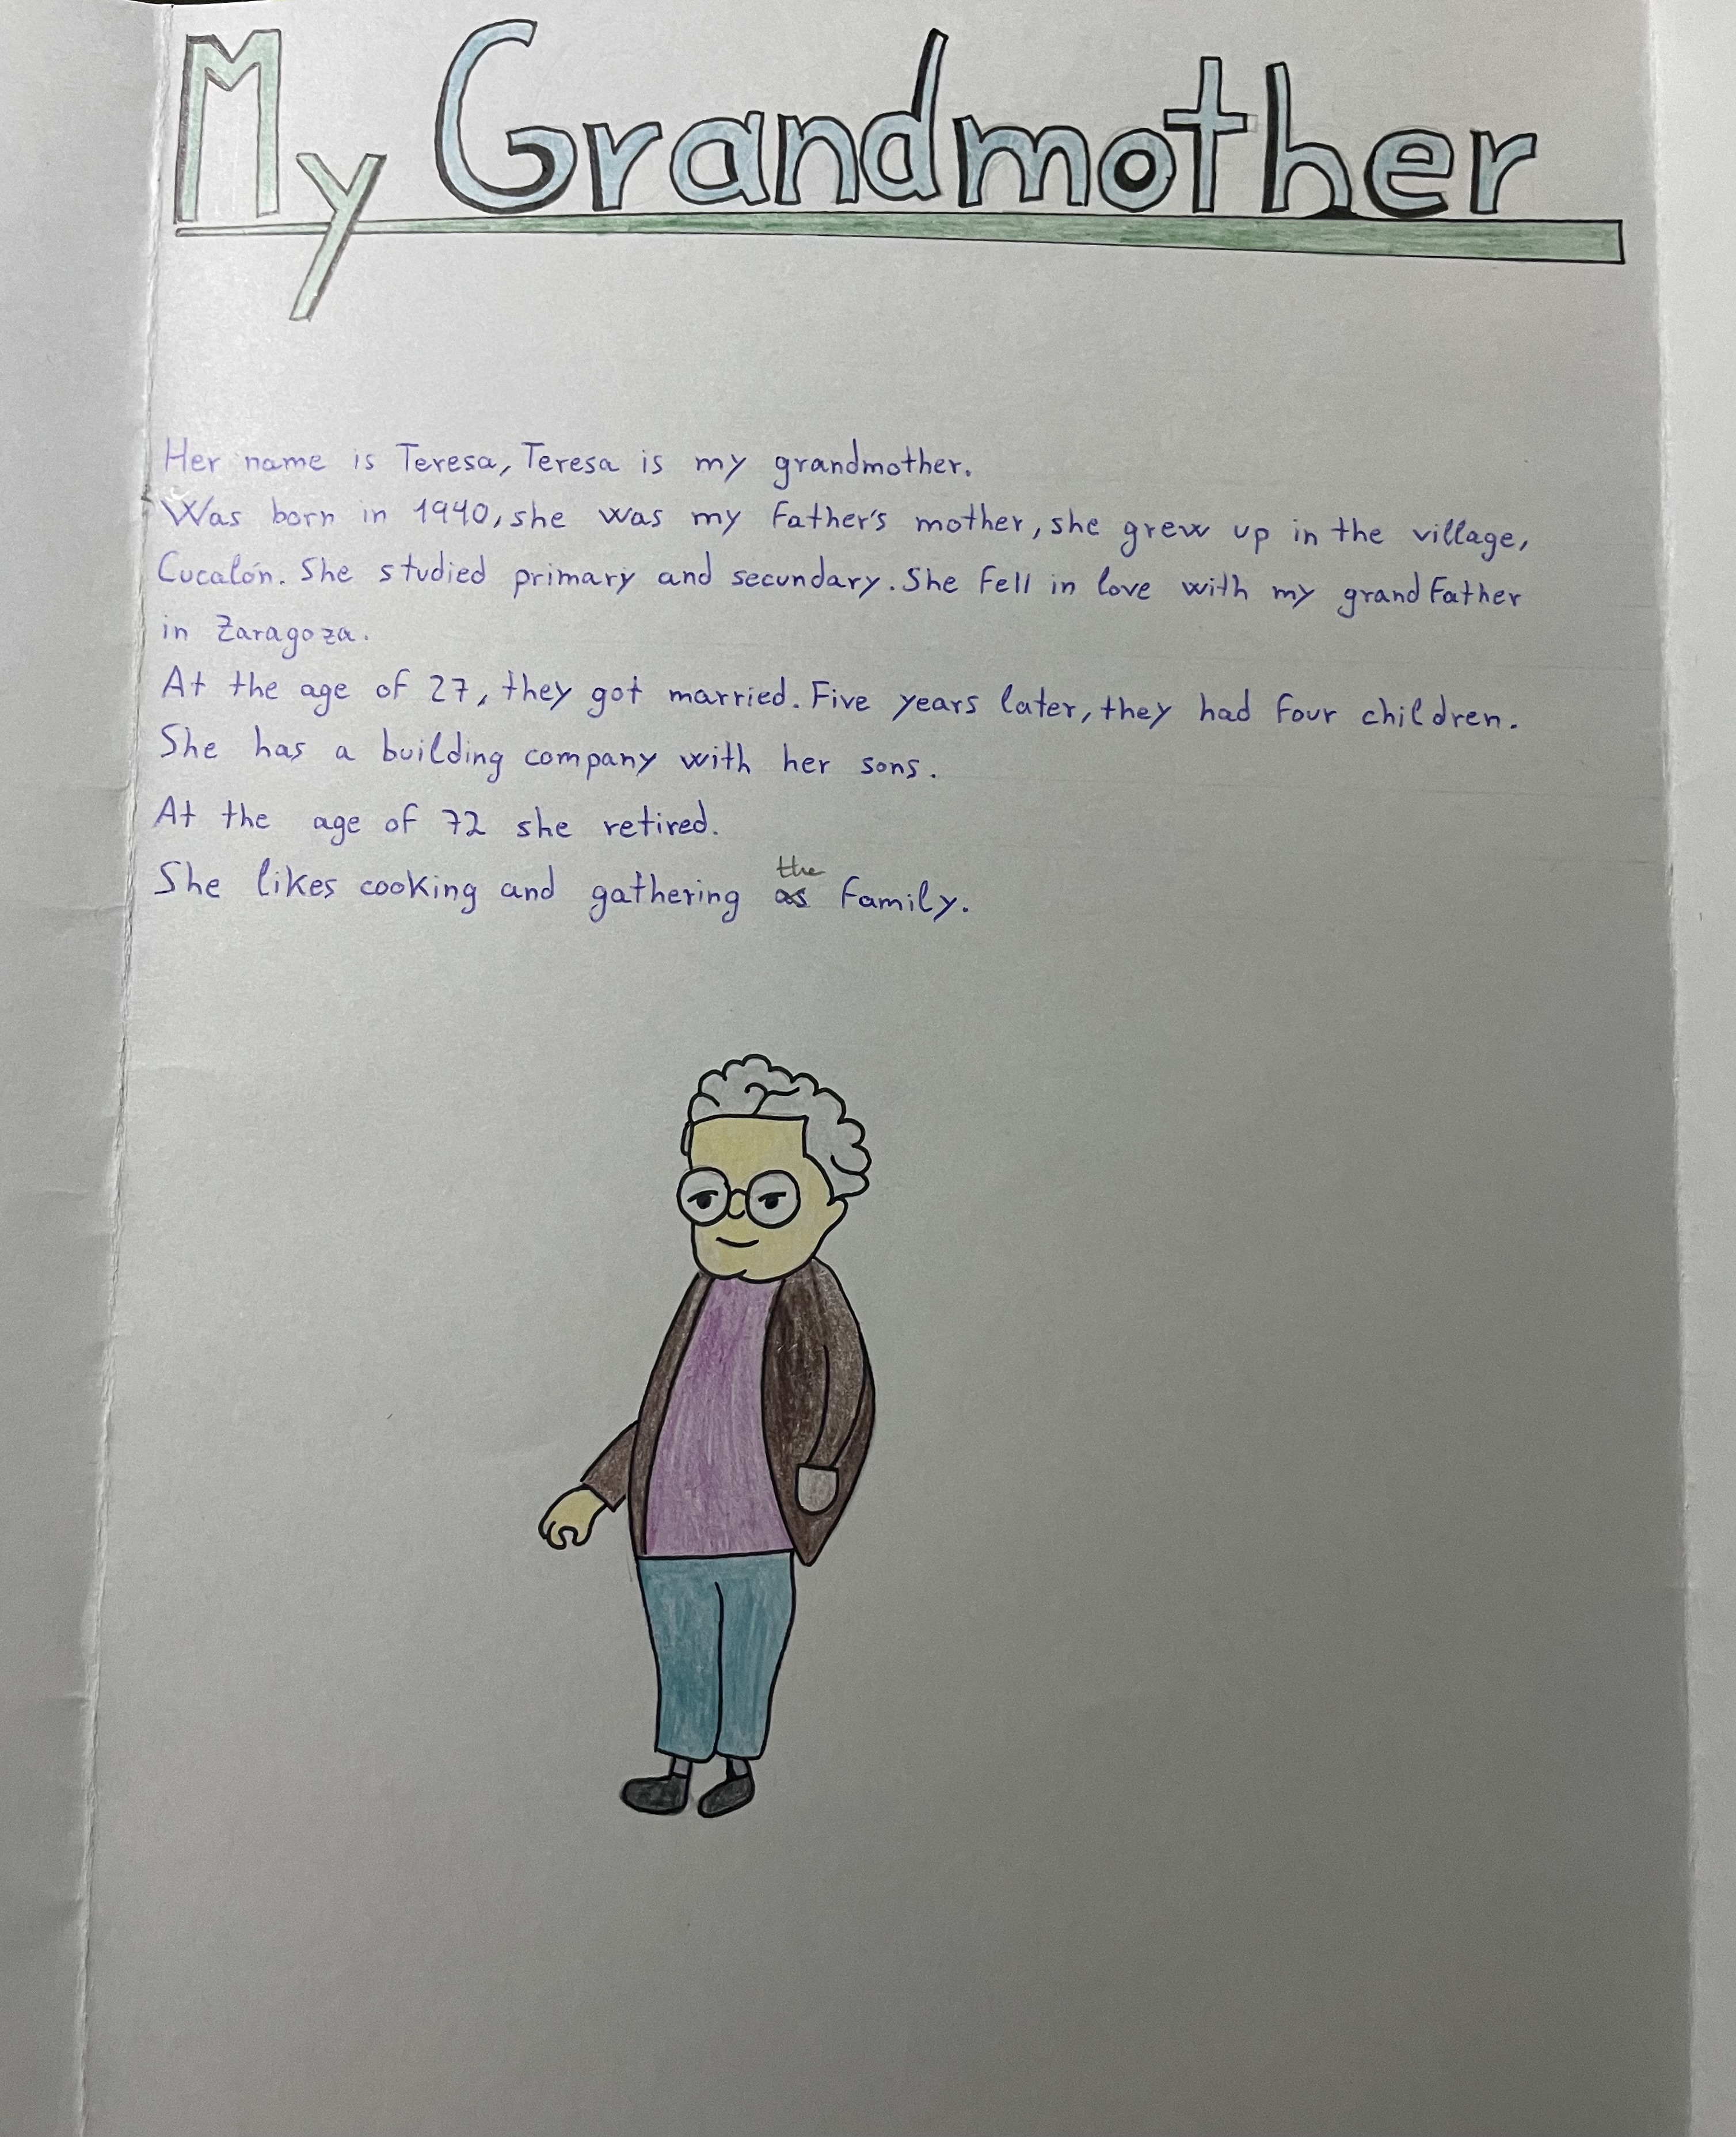 My Grandmother
Her name is Teresa, Teresa is my grandmother.
Was born in 1940, she was my father's mother, she grew up in the village,
Cucalón. She studied primary and secundary. She fell in love with my grandfather
in Zaragoza.
At the age of 27, they got married. Five years later, they had four children.
She has a building company with her sons.
At the age of 72 she retired.
the
She likes cooking and gathering as family.